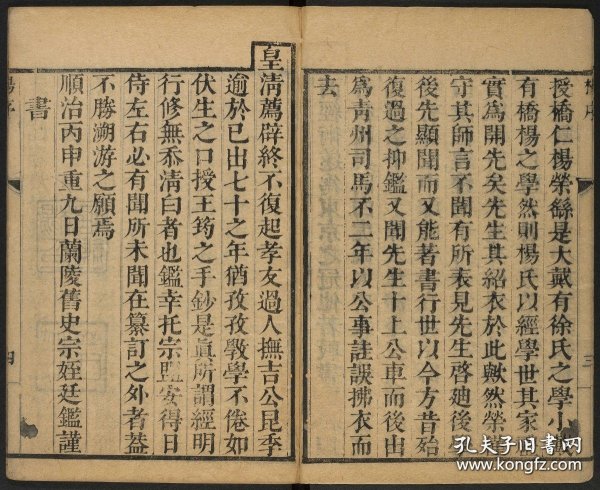 授橋仁楊榮繇是大戴有徐氏之學小
有橋楊之學然則楊氏以經學世其家
實爲開先矣先生其紹衣於此歟然榮
守其師言不聞有所表見先生啓廸後
後先顯聞而又能著書行世以今方昔殆
復過之抑鑑又聞先生十上公車而後出
爲青州司馬不二年以公事詿誤拂衣而
去
皇清薦辟終不復起孝友過人撫吉公昆季
逾於已出七十之年猶孜孜敎學不倦如
伏生之口授王筠之手鈔是眞所謂經明
行修無忝清白者也鑑幸托宗盟安得日
侍左右必有聞所未聞在纂訂之外者葢
不勝溯游之願焉
順治丙申重九日蘭陵舊史宗姪廷鑑謹
書
楊序
三
四
孔夫子旧书网
www.kongfz.com